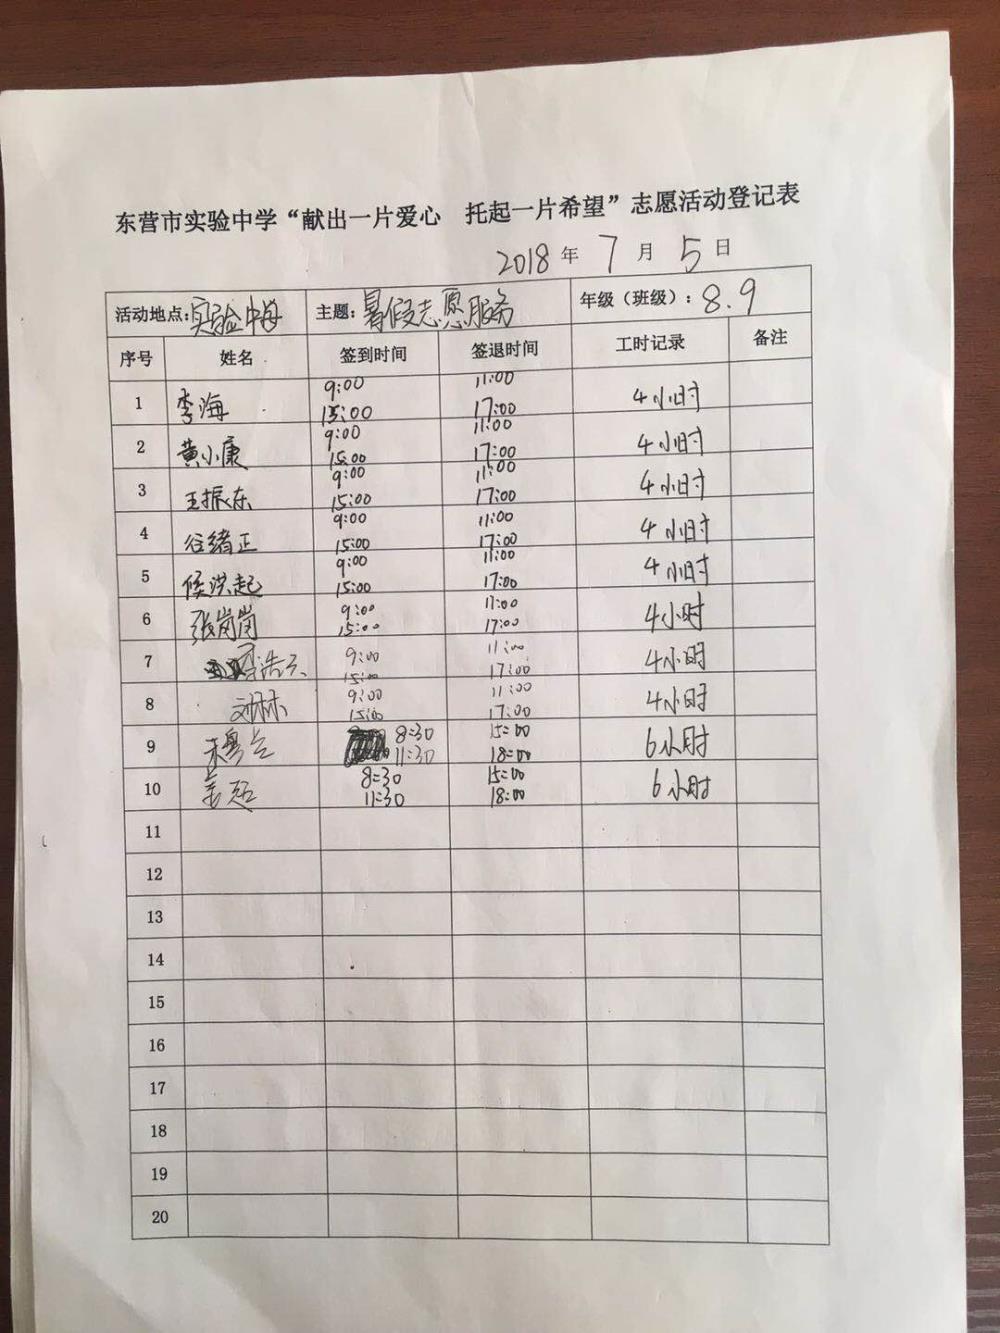 东营市实验中学“献出一片爱心 托起一片希望”志愿活动登记表
2018年7月5日
活动地点:实验中学 主题:暑假志愿服务 年级（班级）: 8.9
序号 姓名 签到时间 签退时间 工时记录 备注
1 李海 9:00 15:00 11:00 17:00 4小时
2 黄小康 9:00 15:00 11:00 17:00 4小时
3 王振东 9:00 15:00 11:00 17:00 4小时
4 谷绪正 9:00 15:00 11:00 17:00 4小时
5 侯洪起 9:00 15:00 11:00 17:00 4小时
6 张岗岗 9:00 15:00 11:00 17:00 4小时
7 9:00 15:00 11:00 17:00 4小时
8 刘林 9:00 15:00 11:00 17:00 4小时
9 8:30 11:30 15:00 18:00 6小时
10 8:30 11:30 15:00 18:00 6小时
11
12
13
14
15
16
17
18
19
20